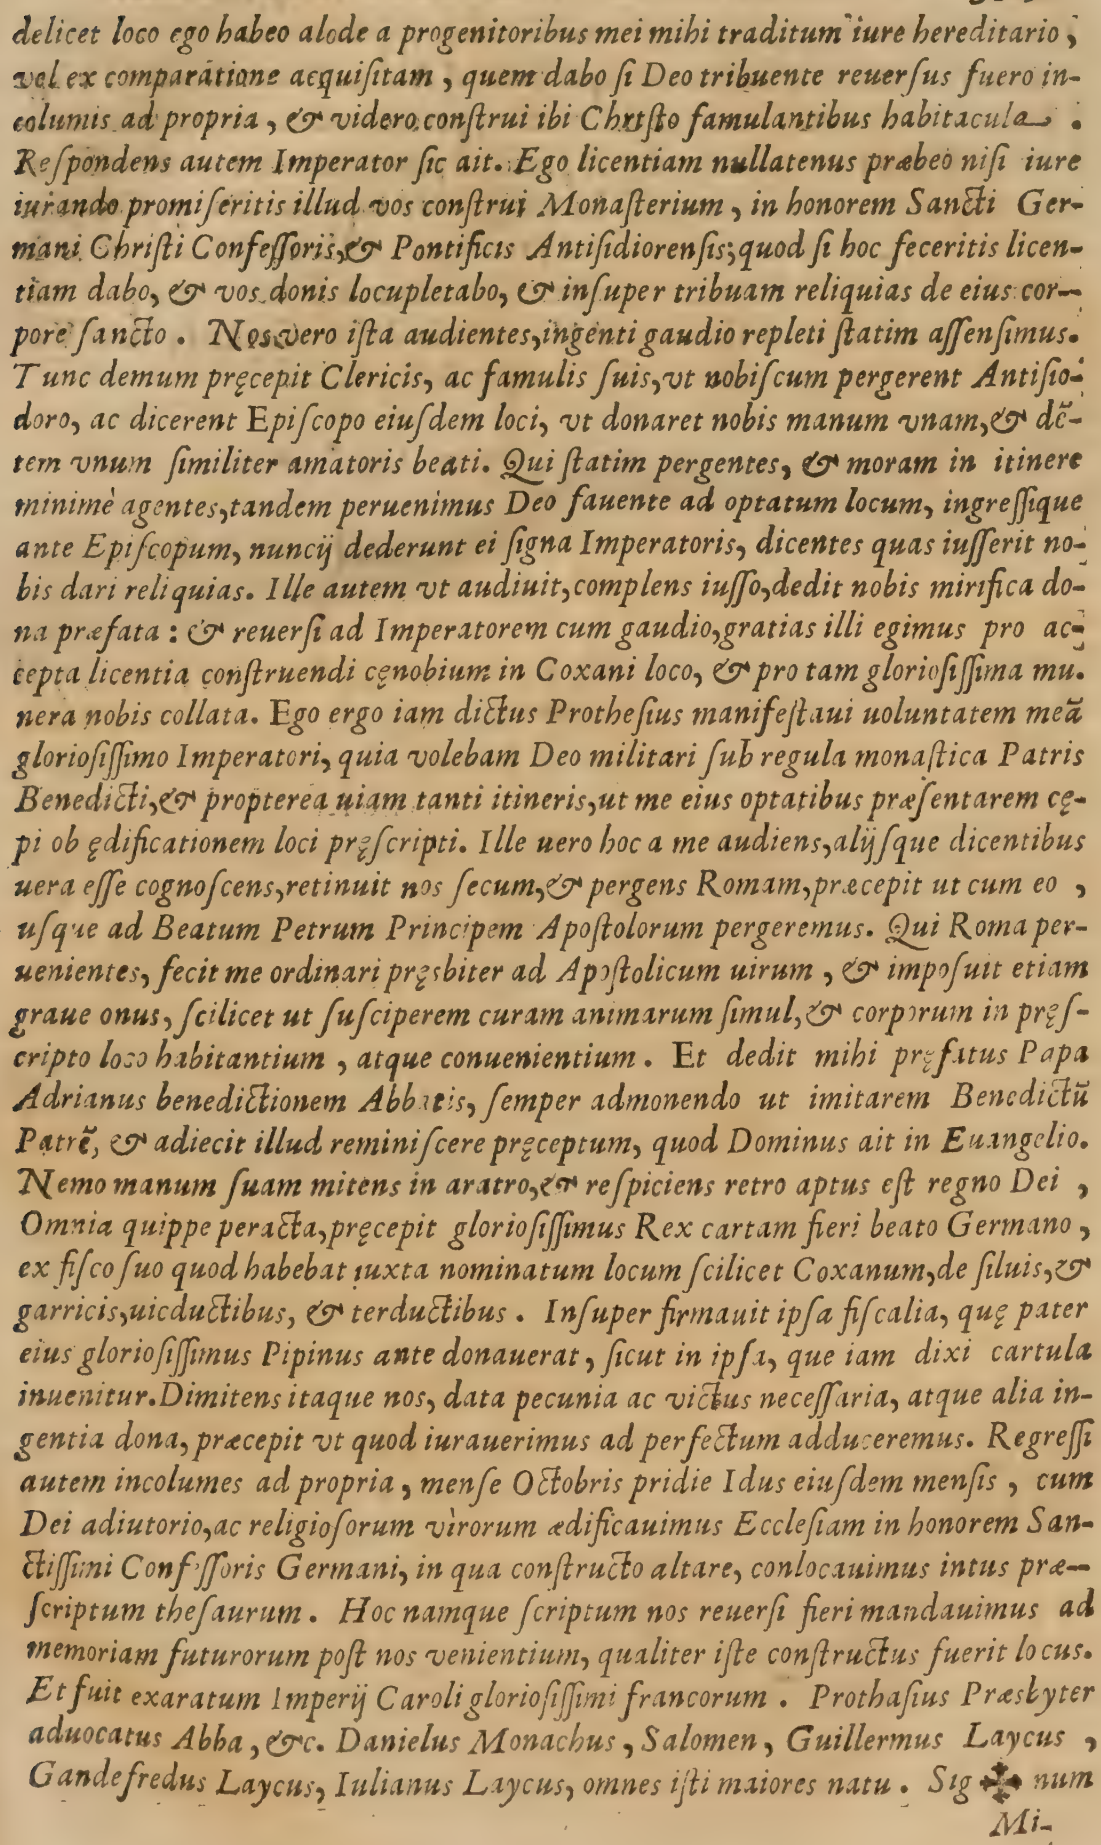 delicet loco ego habeo alode a progenitoribus mei mihi traditum iure hereditario,
vel ex comparatione acquiſitam, quem dabo ſi Deo tribuente reuerſus fuero in-
columis ad propria, & videro conſtrui ibi Chriſto famulantibus habitacula.
Reſpondens autem Imperator ſic ait. Ego licentiam nullatenus præbeo niſi iure
iurando promiſeritis illud vos conſtrui Monaſterium, in honorem Sancti Ger-
mani Chriſti Confeſſoris, & Pontificis Antiſidiorenſis; quod ſi hoc feceritis licen-
tiam dabo, & vos donis locupletabo, & inſuper tribuam reliquias de eius cor-
pore ſancto. Nos vero iſta audientes, ingenti gaudio repleti ſtatim aſſenſimus.
Tunc demum pręcepit Clericis, ac famulis ſuis, vt nobiſcum pergerent Antiſio-
doro, ac dicerent Epiſcopo eiuſdem loci, vt donaret nobis manum vnam, & dē-
tem vnum ſimiliter amatoris beati. Qui ſtatim pergentes, & moram in itinere
minimè agentes, tandem peruenimus Deo fauente ad optatum locum, ingreſſique
ante Epiſcopum, nuncij dederunt ei ſigna Imperatoris, dicentes quas iuſſerit no-
bis dari reliquias. Ille autem vt audiuit, complens iuſſo, dedit nobis mirifica do-
na præfata: & reuerſi ad Imperatorem cum gaudio, gratias illi egimus pro ac-
cepta licentia conſtruendi cęnobium in Coxani loco, & pro tam glorioſiſſima mu.
nera nobis collata. Ego ergo iam dictus Protheſius manifeſtaui uoluntatem meā
glorioſiſſimo Imperatori, quia volebam Deo militari ſub regula monaſtica Patris
Benedicti, & propterea uiam tanti itineris, ut me eius optatibus præſentarem cę-
pi ob ędificationem loci pręſcripti. Ille uero hoc a me audiens, alijſque dicentibus
uera eſſe cognoſcens, retinuit nos ſecum, & pergens Romam, præcepit ut cum eo,
uſque ad Beatum Petrum Principem Apoſtolorum pergeremus. Qui Roma per-
uenientes, fecit me ordinari pręsbiter ad Apoſtolicum uirum, & impoſuit etiam
graue onus, ſcilicet ut ſuſciperem curam animarum ſimul, & corporum in pręſ-
cripto loco habitantium, atque conuenientium. Et dedit mihi pręfatus Papa
Adrianus benedictionem Abbatis, ſemper admonendo ut imitarem Benedictū
Patrē, & adiecit illud reminiſcere pręceptum, quod Dominus ait in Euangelio.
Nemo manum ſuam mitens in aratro, & reſpiciens retro aptus eſt regno Dei,
Omnia quippe peracta, pręcepit glorioſiſſimus Rex cartam fieri beato Germano,
ex fiſco ſuo quod habebat iuxta nominatum locum ſcilicet Coxanum, de ſiluis, &
garricis, uicductibus, & terductibus. Inſuper firmauit ipſa fiſcalia, quę pater
eius glorioſiſſimus Pipinus ante donauerat, ſicut in ipſa, que iam dixi cartula
inuenitur. Dimitens itaque nos, data pecunia ac victus neceſſaria, atque alia in-
gentia dona, præcepit vt quod iurauerimus ad perfectum adduceremus. Regreſſi
autem incolumes ad propria, menſe Octobris pridie Idus eiuſdem menſis, cum
Dei adiutorio, ac religioſorum vìrorum ædificauimus Eccleſiam in honorem San-
ctiſſimi Confeſſoris Germani, in qua conſtructo altare, conlocauimus intus præ-
ſcriptum theſaurum. Hoc namque ſcriptum nos reuerſi fieri mandauimus ad
memoriam futurorum poſt nos venientium, qualiter iſte conſtructus fuerit locus.
Et fuit exaratum Imperij Caroli glorioſiſſimi francorum. Prothaſius Præsbyter
aduocatus Abba, &c. Danielus Monachus, Salomen, Guillermus Laycus,
Gandefredus Laycus, Iulianus Laycus, omnes iſti maiores natu. Sig ✠ num
Mi-